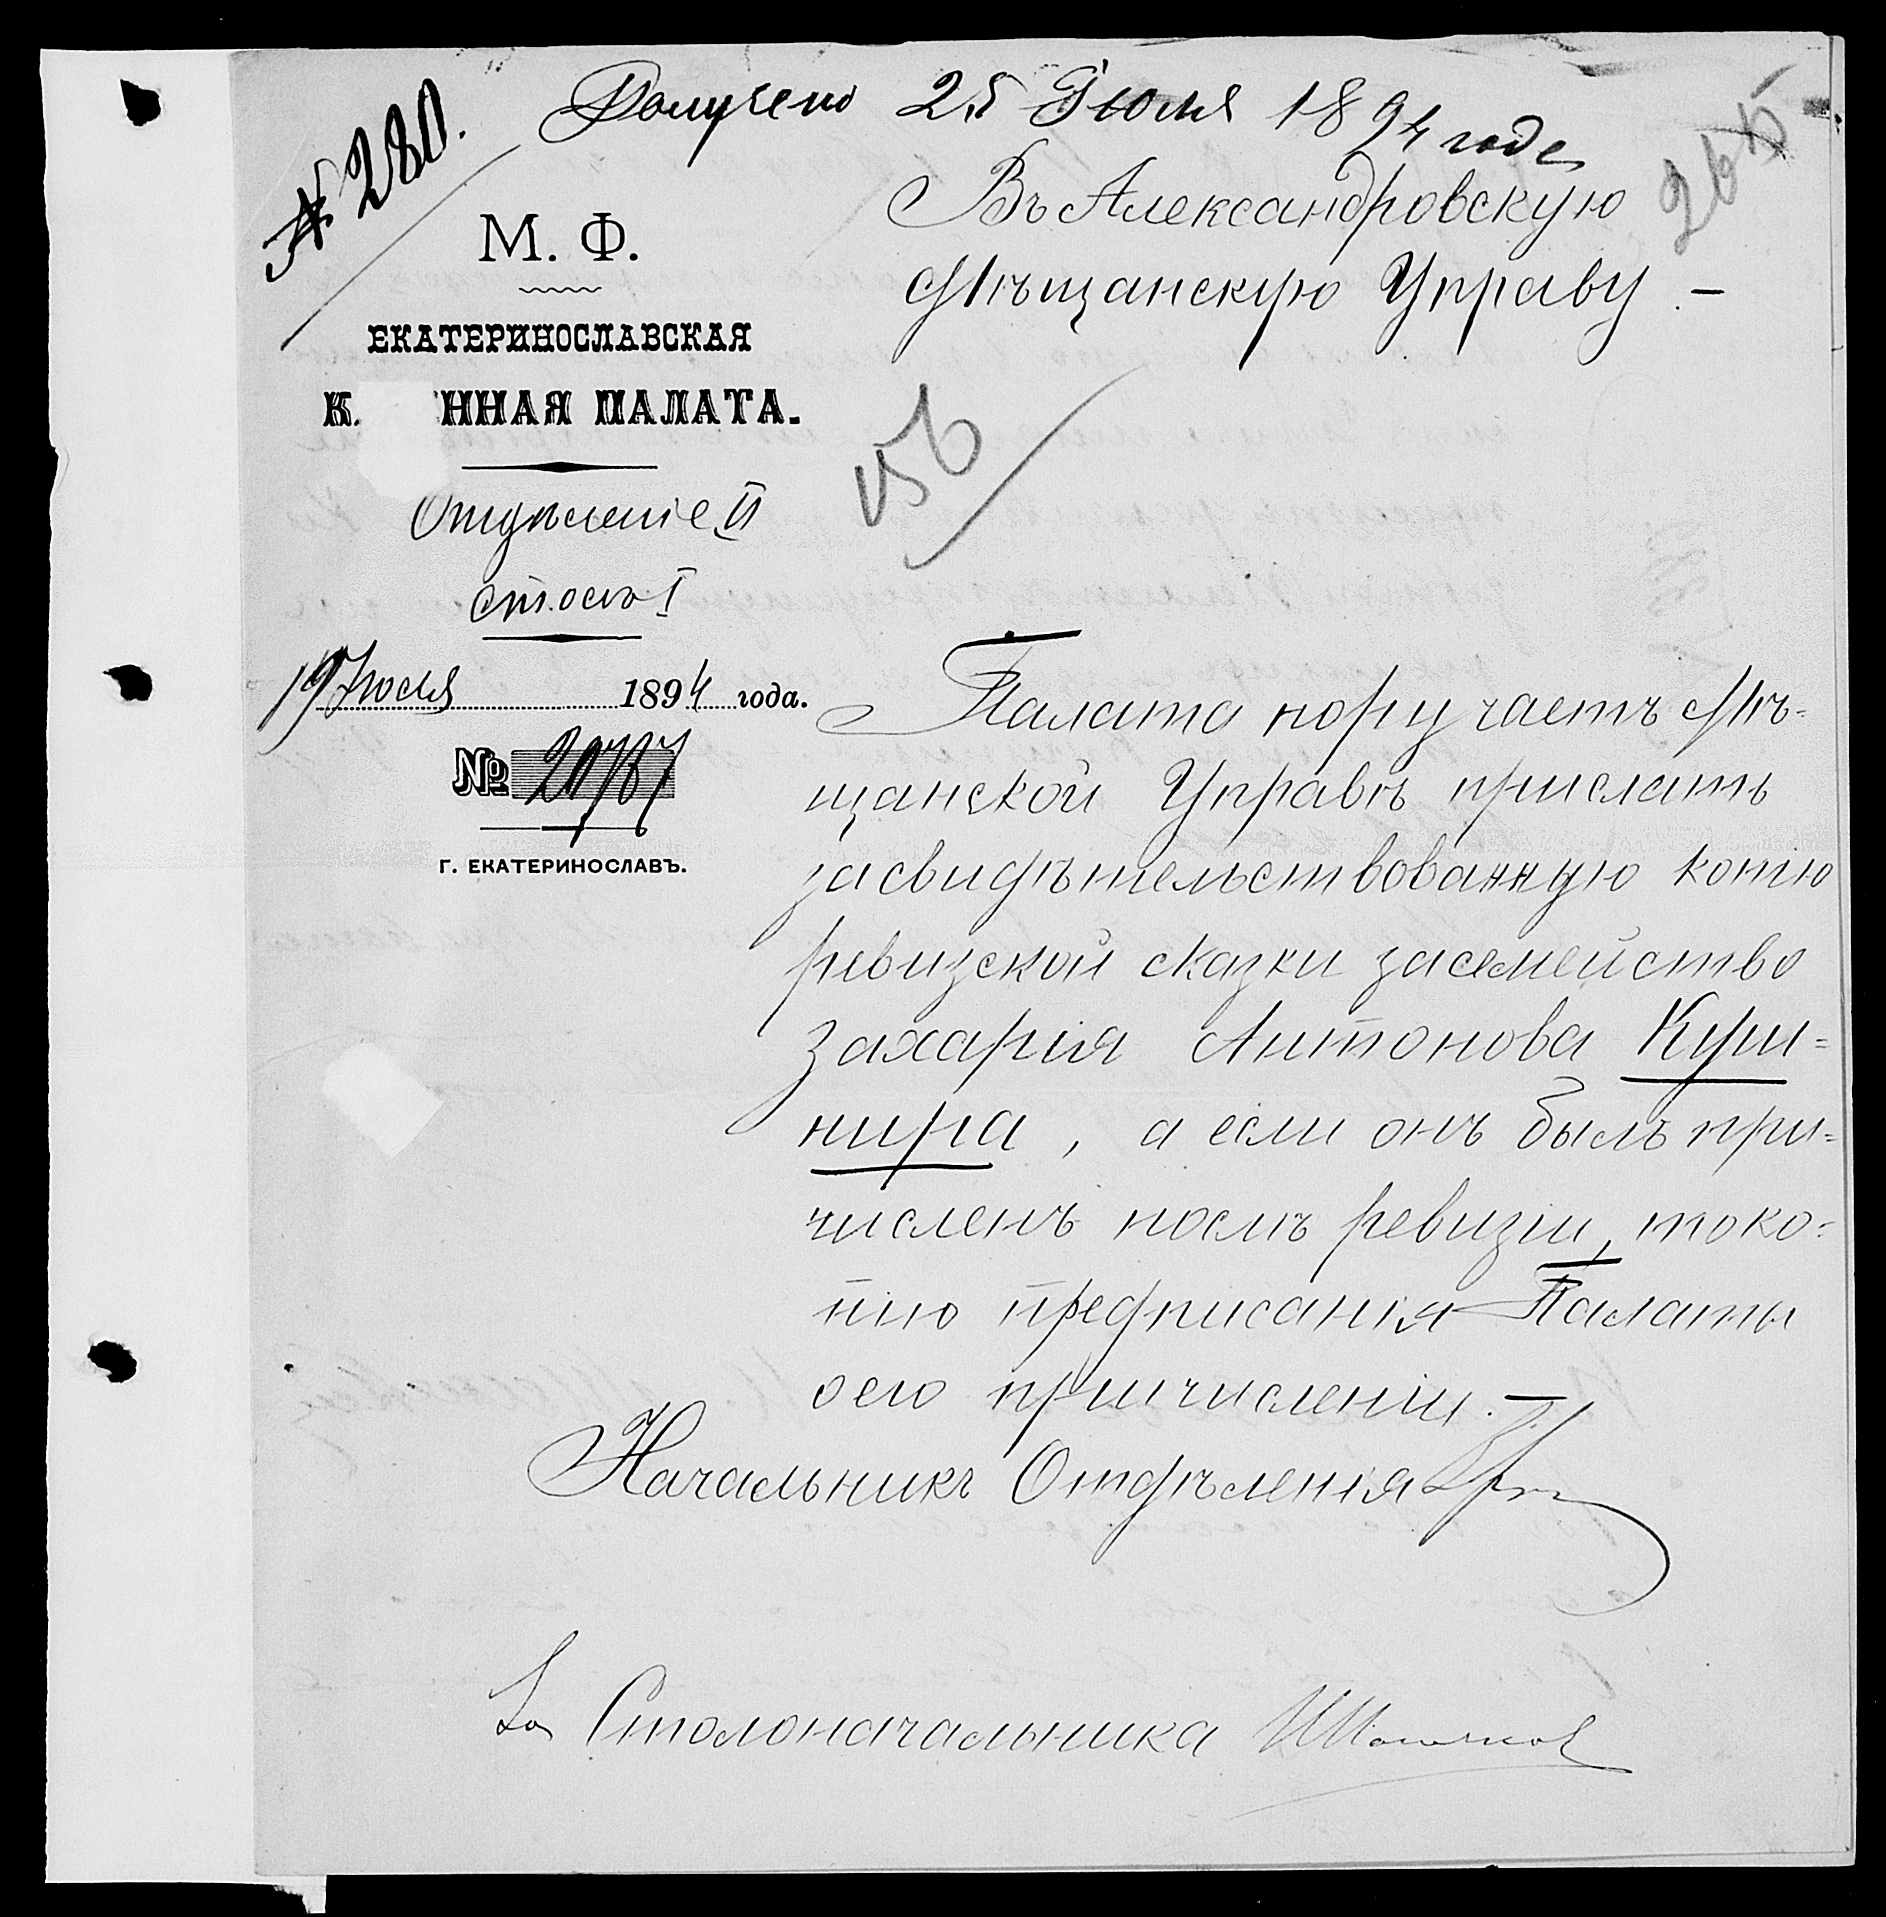 № 280.
Получено 25 Июля 1894 года
265
М. Ф.
ЕКАТЕРИНОСЛАВСКАЯ
К. ННАЯ ПАЛАТА.
Отдѣленіе II
столъ I
19 Июля 1894 года.
№ 20787
Г. ЕКАТЕРИНОСЛАВЪ.
Въ Александровскую
Мѣщанскую Управу. –
156
Палата поручаетъ Мѣ=
щанской Управѣ прислать
засвидѣтельствованную копію
ревизской сказки за семейство
Захарія Антонова Куш=
нира, а если онъ былъ при=
численъ послѣ ревизіи, то ко=
пію предписанія Палаты
о его причисленіи. –
Начальникъ Отдѣленія
За Столоначальника